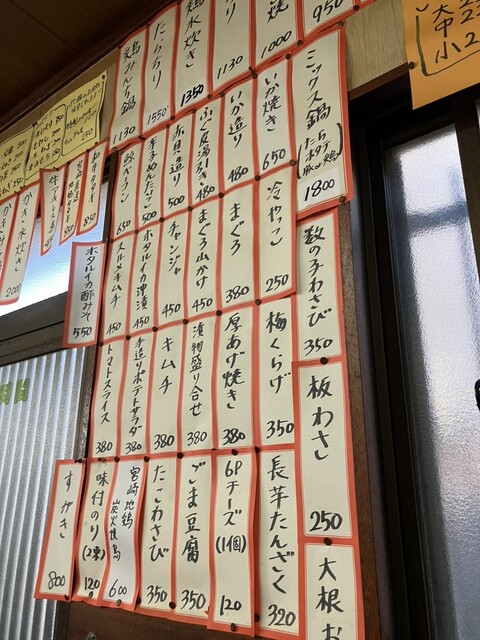 950
焼
1000
り
1130
鶏水炊き
1350
たらちり
1550
鶏みぞれ鍋
1130
大
中
小 2
ミックス鍋
(たら
ホタテ
豚or鶏)
1800
いか焼き
650
いか造り
480
ふぐ皮湯引き
480
赤貝造り
500
辛子めんたいこ
500
650
冷やっこ
250
まぐろ
380
まぐろ山かけ
450
チャンジャ
450
ホタルイカ沖漬
450
スルメキムチ
450
数の子わさび
350
梅くらげ
350
厚あげ焼き
380
漬物盛り合せ
380
キムチ
380
手造りポテトサラダ
380
トマトスライス
380
板わさ
250
長芋たんざく
320
6Pチーズ
(1個)
120
ごま豆腐
350
たこわさび
350
宮崎地鶏
炭火焼鳥
600
味付のり
(2束)
120
すがき
800
大根お
ホタルイカ酢みそ
550
850
かき水炊き
2000